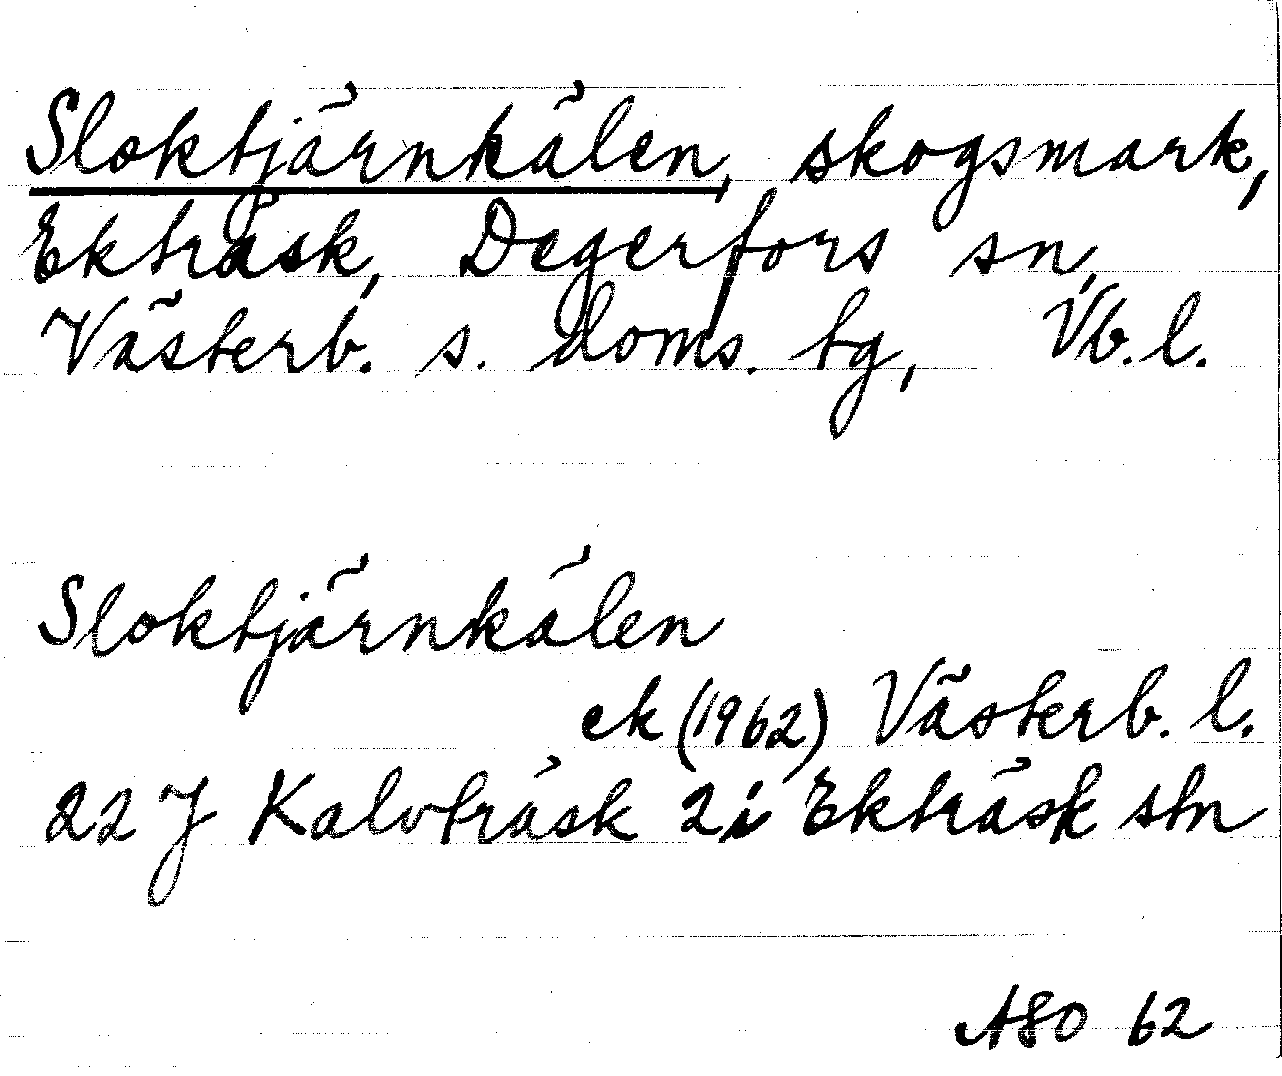 Sloktjärnkälen, skogsmark,
Ekträsk, Degerfors sn,
Västerb. s. doms. tg, Vb. l.
Sloktjärnkälen
ek (1962) Västerb. l.
22 J Kalvträsk 2 i Ekträsk stn
ASO 62